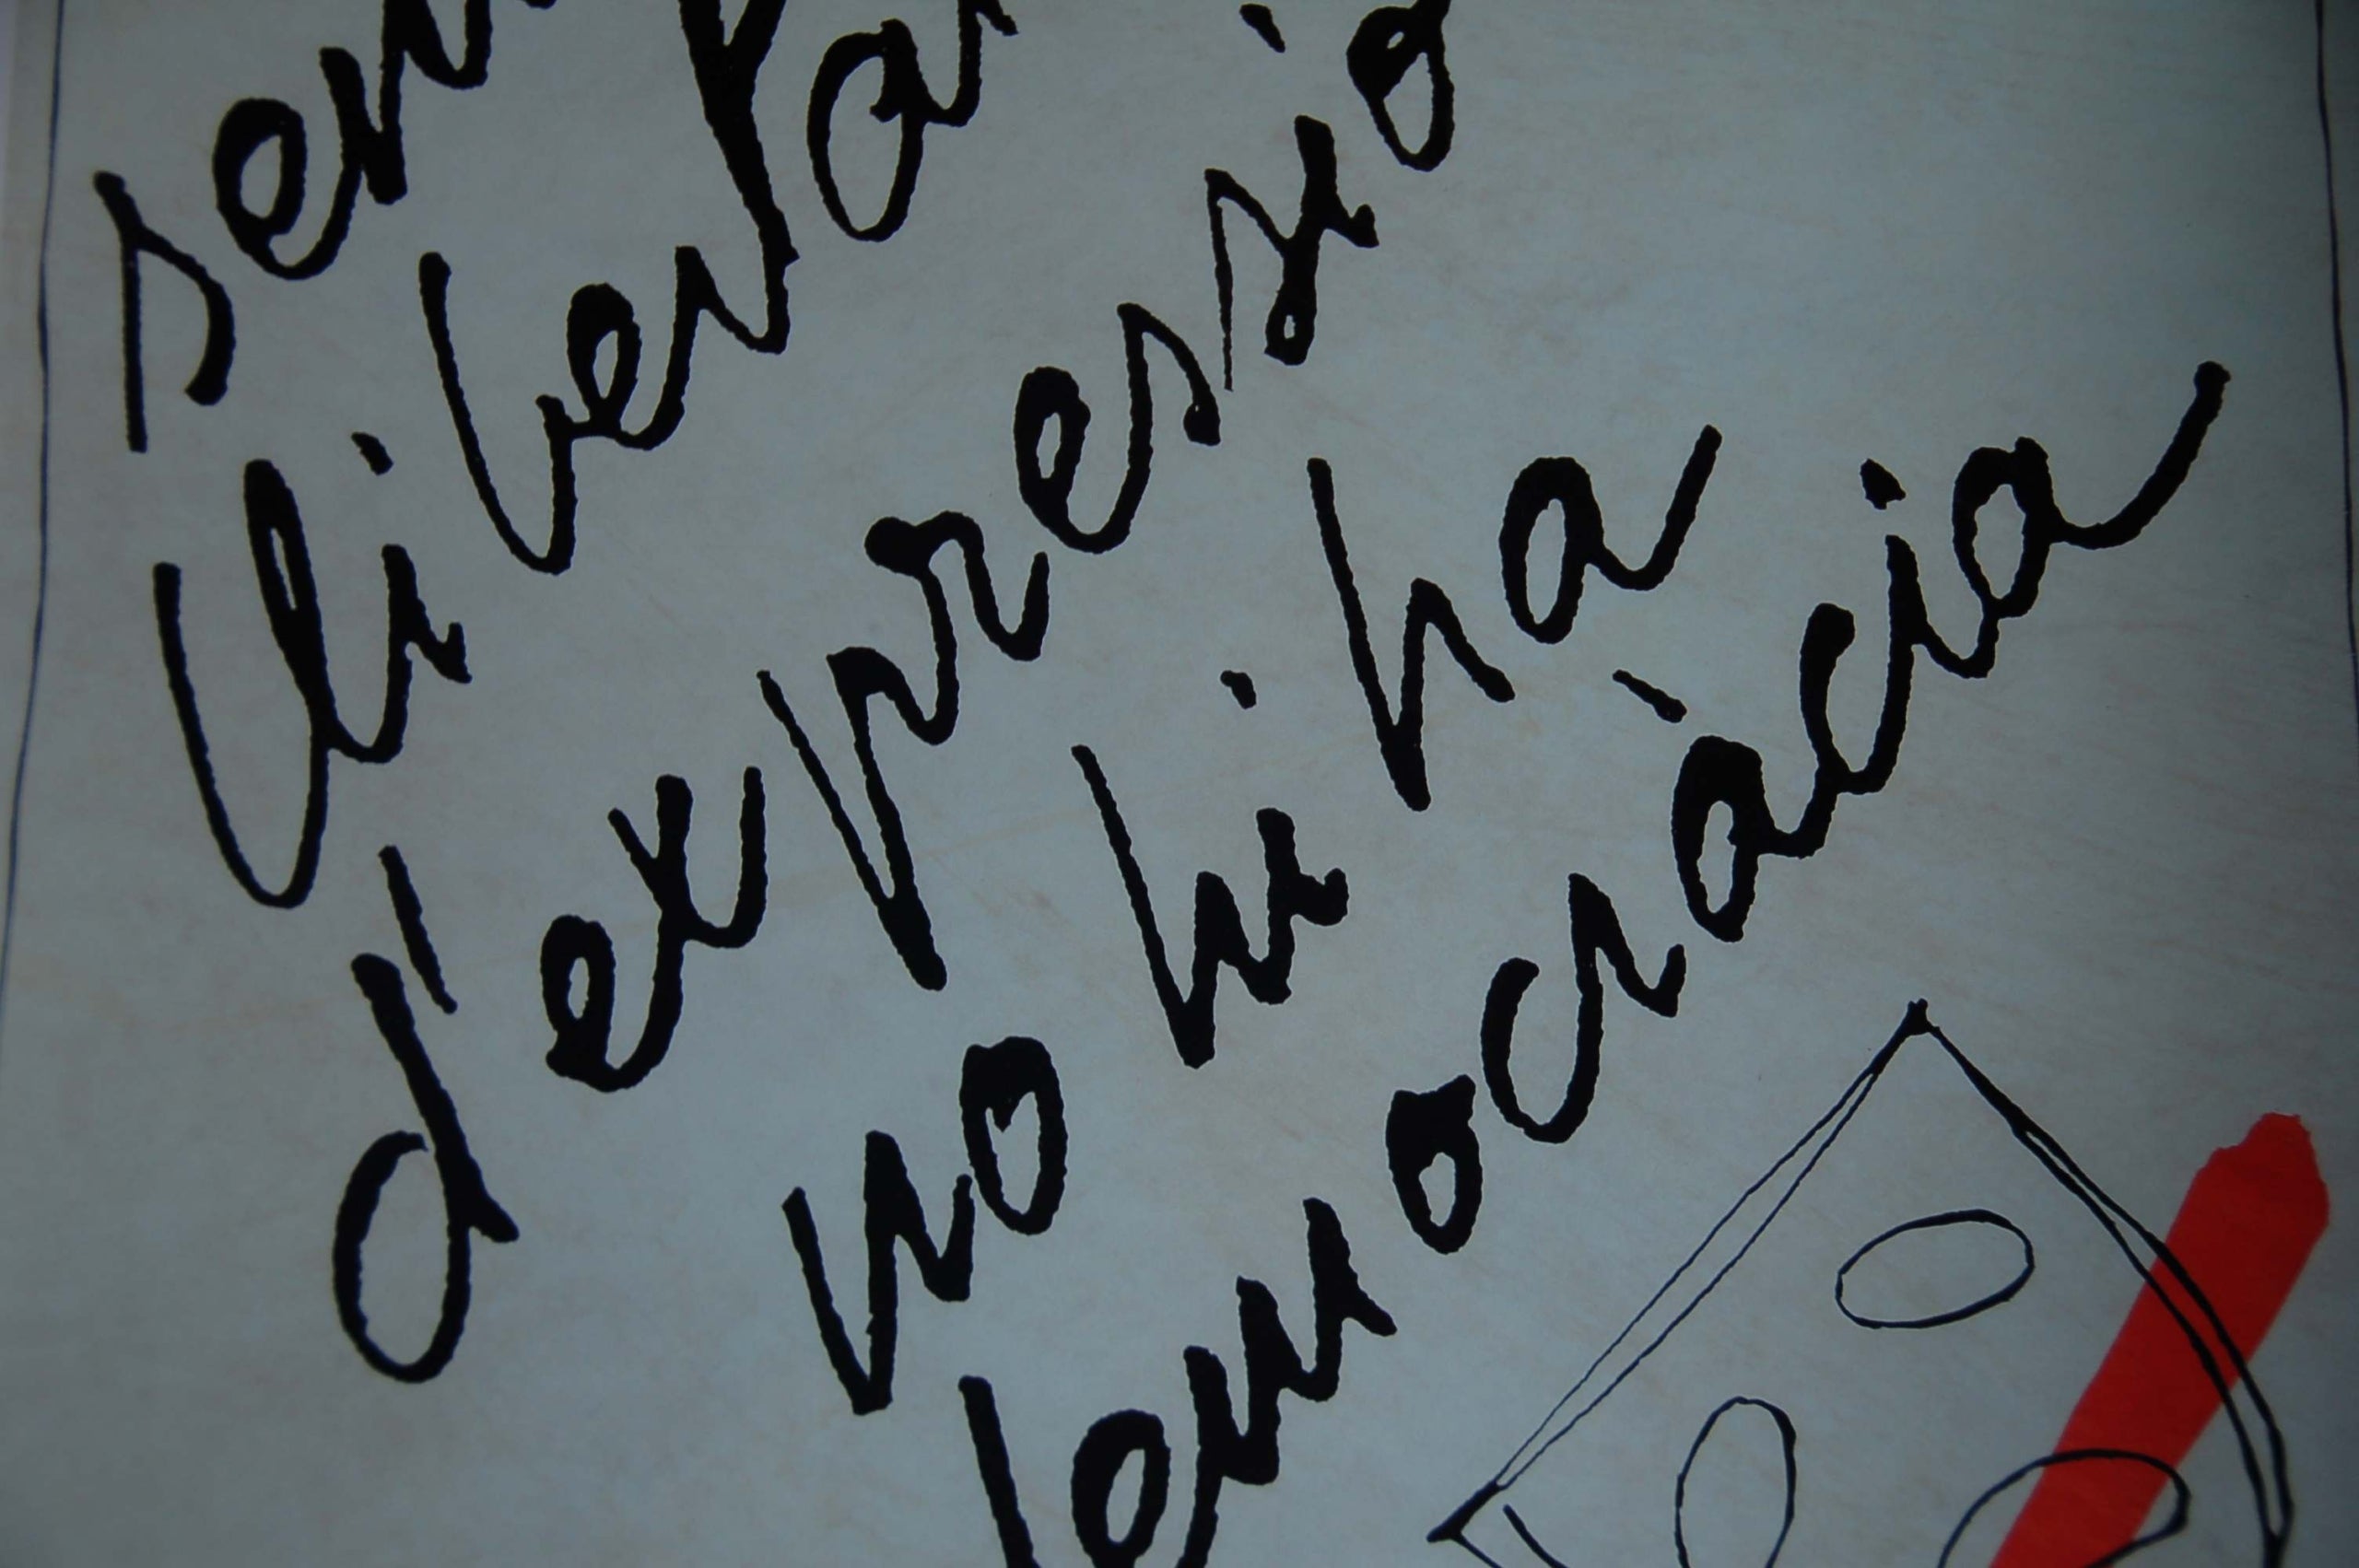 sen
llibertat
d'expressió
no hi ha
democràcia